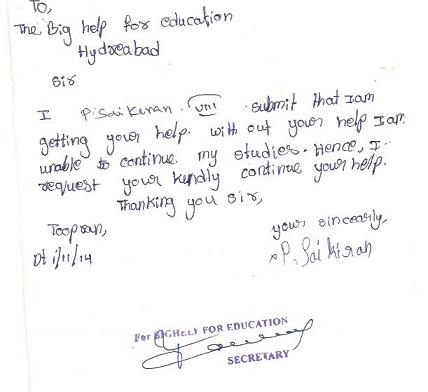 To,
The Big help for education
Hydreabad
Sir
I P. Sai Kiran. VIII submit that I am
getting your help. with out your help I am
unable to continue. my studies. Hence, I
request your kindly continue your help.
Thanking you sir,
Toopran,
your sincearly,
Dt 1/11/14
P. Sai kiran
For BIGHELP FOR EDUCATION
SECRETARY